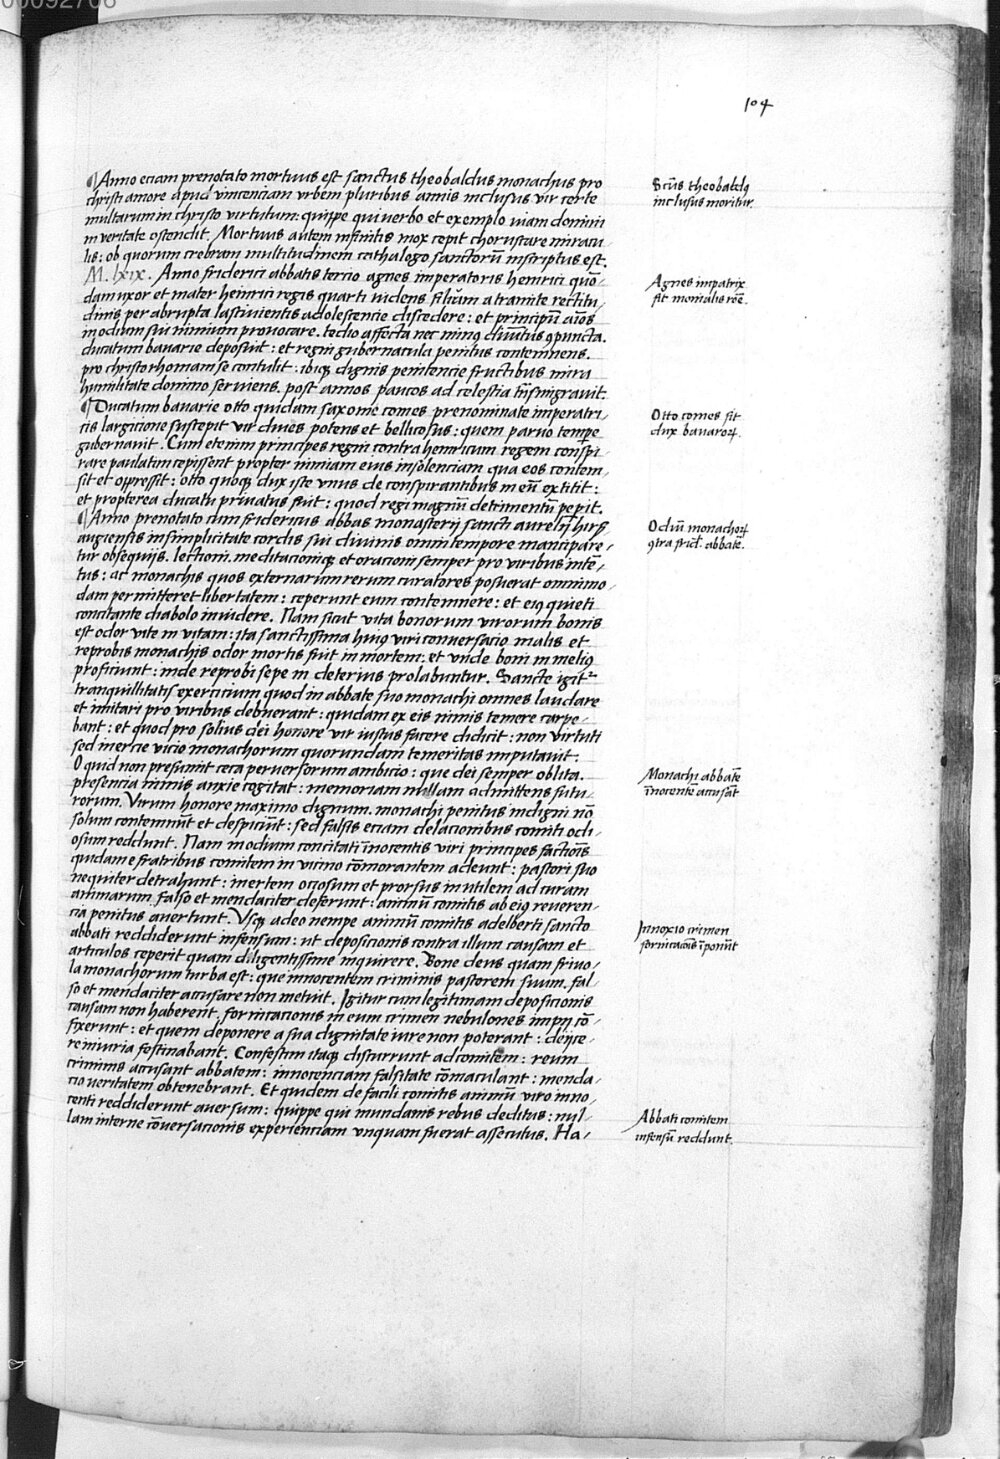 00092706
104
¶Anno eciam prenotato mortuus est sanctus theobaldus monachus pro
christi amore apud vincenciam vrbem pluribus annis inclusus vir certe
multarum in christo virtutum: quippe qui verbo et exemplo viam domini
in veritate ostendit. Mortuus autem infinitis mox cepit choruscare miracu
lis: ob quorum crebram multitudinem cathalogo sanctorū inscriptus est.
M. lxix. Anno friderici abbatis tercio agnes imperatoris heinrici quō-
dam uxor et mater heinrici regis quarti videns filium a tramite rectitu,
dinis per abrupta lascivientis adolescencie discedere: et principū aīos
in odium sui nimium provocare. tedio affecta nec minꝰ diuītus ꝯpuncta.
ducatum bavarie deposuit: et regni gubernacula penitus contemnens.
pro christo rhomam se contulit: ibiqꝫ dignis penitencie fructibus mira
humilitate domino serviens. post annos paucos ad celestia trāsmigravit.
¶Ducatum bavarie otto quidam saxonie comes prenominate imperatri,
cis largicione suscepit vir dives potens et bellicosus: quem parvo tempe
gubernavit. Cum etenim principes regni contra heinricum regem conspi,
rare paulatim cepissent propter nimiam eius insolenciam qua eos contem,
sit et oppressit: otto quoqꝫ dux iste vnus de conspirantibus in eū extitit:
et propterea ducatu privatus fuit: quod regi magnū detrimentū peperit.
¶Anno prenotato cum fridericus abbas monasterij sancti aurelij hirs,
augiensis in simplicitate cordis sui divinis omni tempore mancipare,
tur obsequijs. lectioni. meditacioniqꝫ et oracioni semper pro viribus intē,
tus: ac monachis quos externarum rerum curatores posuerat omnimo,
dam permitteret libertatem: ceperunt eum contemnere: et eiꝰ quieti
concitante diabolo invidere. Nam sicut vita bonorum virorum bonis
est odor vite in vitam: ita sanctissima huiꝰ viri conversacio malis et
reprobis monachis odor mortis fuit in mortem: et vnde boni in meliꝰ
proficiunt: inde reprobi sepe in deterius prolabuntur. Sancte igitᷣ
tranquillitatis exercicium quod in abbate suo monachi omnes laudare
et imitari pro viribus debuerant: quidam ex eis nimis temere carpe,
bant: et quod pro solius dei honore vir iustus facere didicit: non virtuti
sed inercie vicio monachorum quorundam temeritas imputavit.
O quid non presumit ceca perversorum ambicio: que dei semper oblita.
presencia nimis anxie cogitat: memoriam nullam admittens futu,
rorum. Virum honore maximo dignum. monachi penitus indigni nō
solum contemnūt et despiciūt: sed falsis eciam delacionibus comiti odi,
osum reddunt. Nam in odium concitati inocentis viri principes factiōis
quidam e fratribus comitem in vicino cōmorantem adeunt: pastori suo
nequiter detrahunt: inertem ociosum et prorsus inutilem ad curam
animarum falso et mendaciter deferunt: animū comitis ab eiꝰ reveren,
cia penitus avertunt. Vsqꝫ adeo nempe animū comitis adelberti sancto
abbati reddiderunt infensum: ut deposicionis contra illum causam et
articulos ceperit quam diligentissime inquirere. Bone deus quam frivo,
la monachorum turba est: que innocentem criminis pastorem suum. fal,
so et mendaciter accusare non metuit. Igitur cum legitimam deposicionis
causam non haberent. fornicacionis in eum crimen nebulones impij cō,
fixerunt: et quem deponere a sua dignitate iure non poterant: deijce,
re iniuria festinabant. Confestim itaqꝫ discurrunt ad comitem: reum
criminis accusant abbatem: innocenciam falsitate cōmaculant: menda,
cio veritatem obtenebrant. Et quidem de facili comitis animū viro inno,
centi reddiderunt aversum: quippe qui mundanis rebus deditus: nul,
lam interne cōversacionis experienciam vnquam fuerat assecutus. Ha,
Scūs theobaldꝰ
inclusus moritur.
Agnes impatrix
fit monialis rōe.
Otto comes fit
dux bavaroꝝ.
Odiū monachoꝝ
ꝯtra frid. abbatē.
Monachi abbatē
īnocente accusāt
Innoxio crimen
fornicaōis īponūt
Abbati comitem
infensū reddunt.